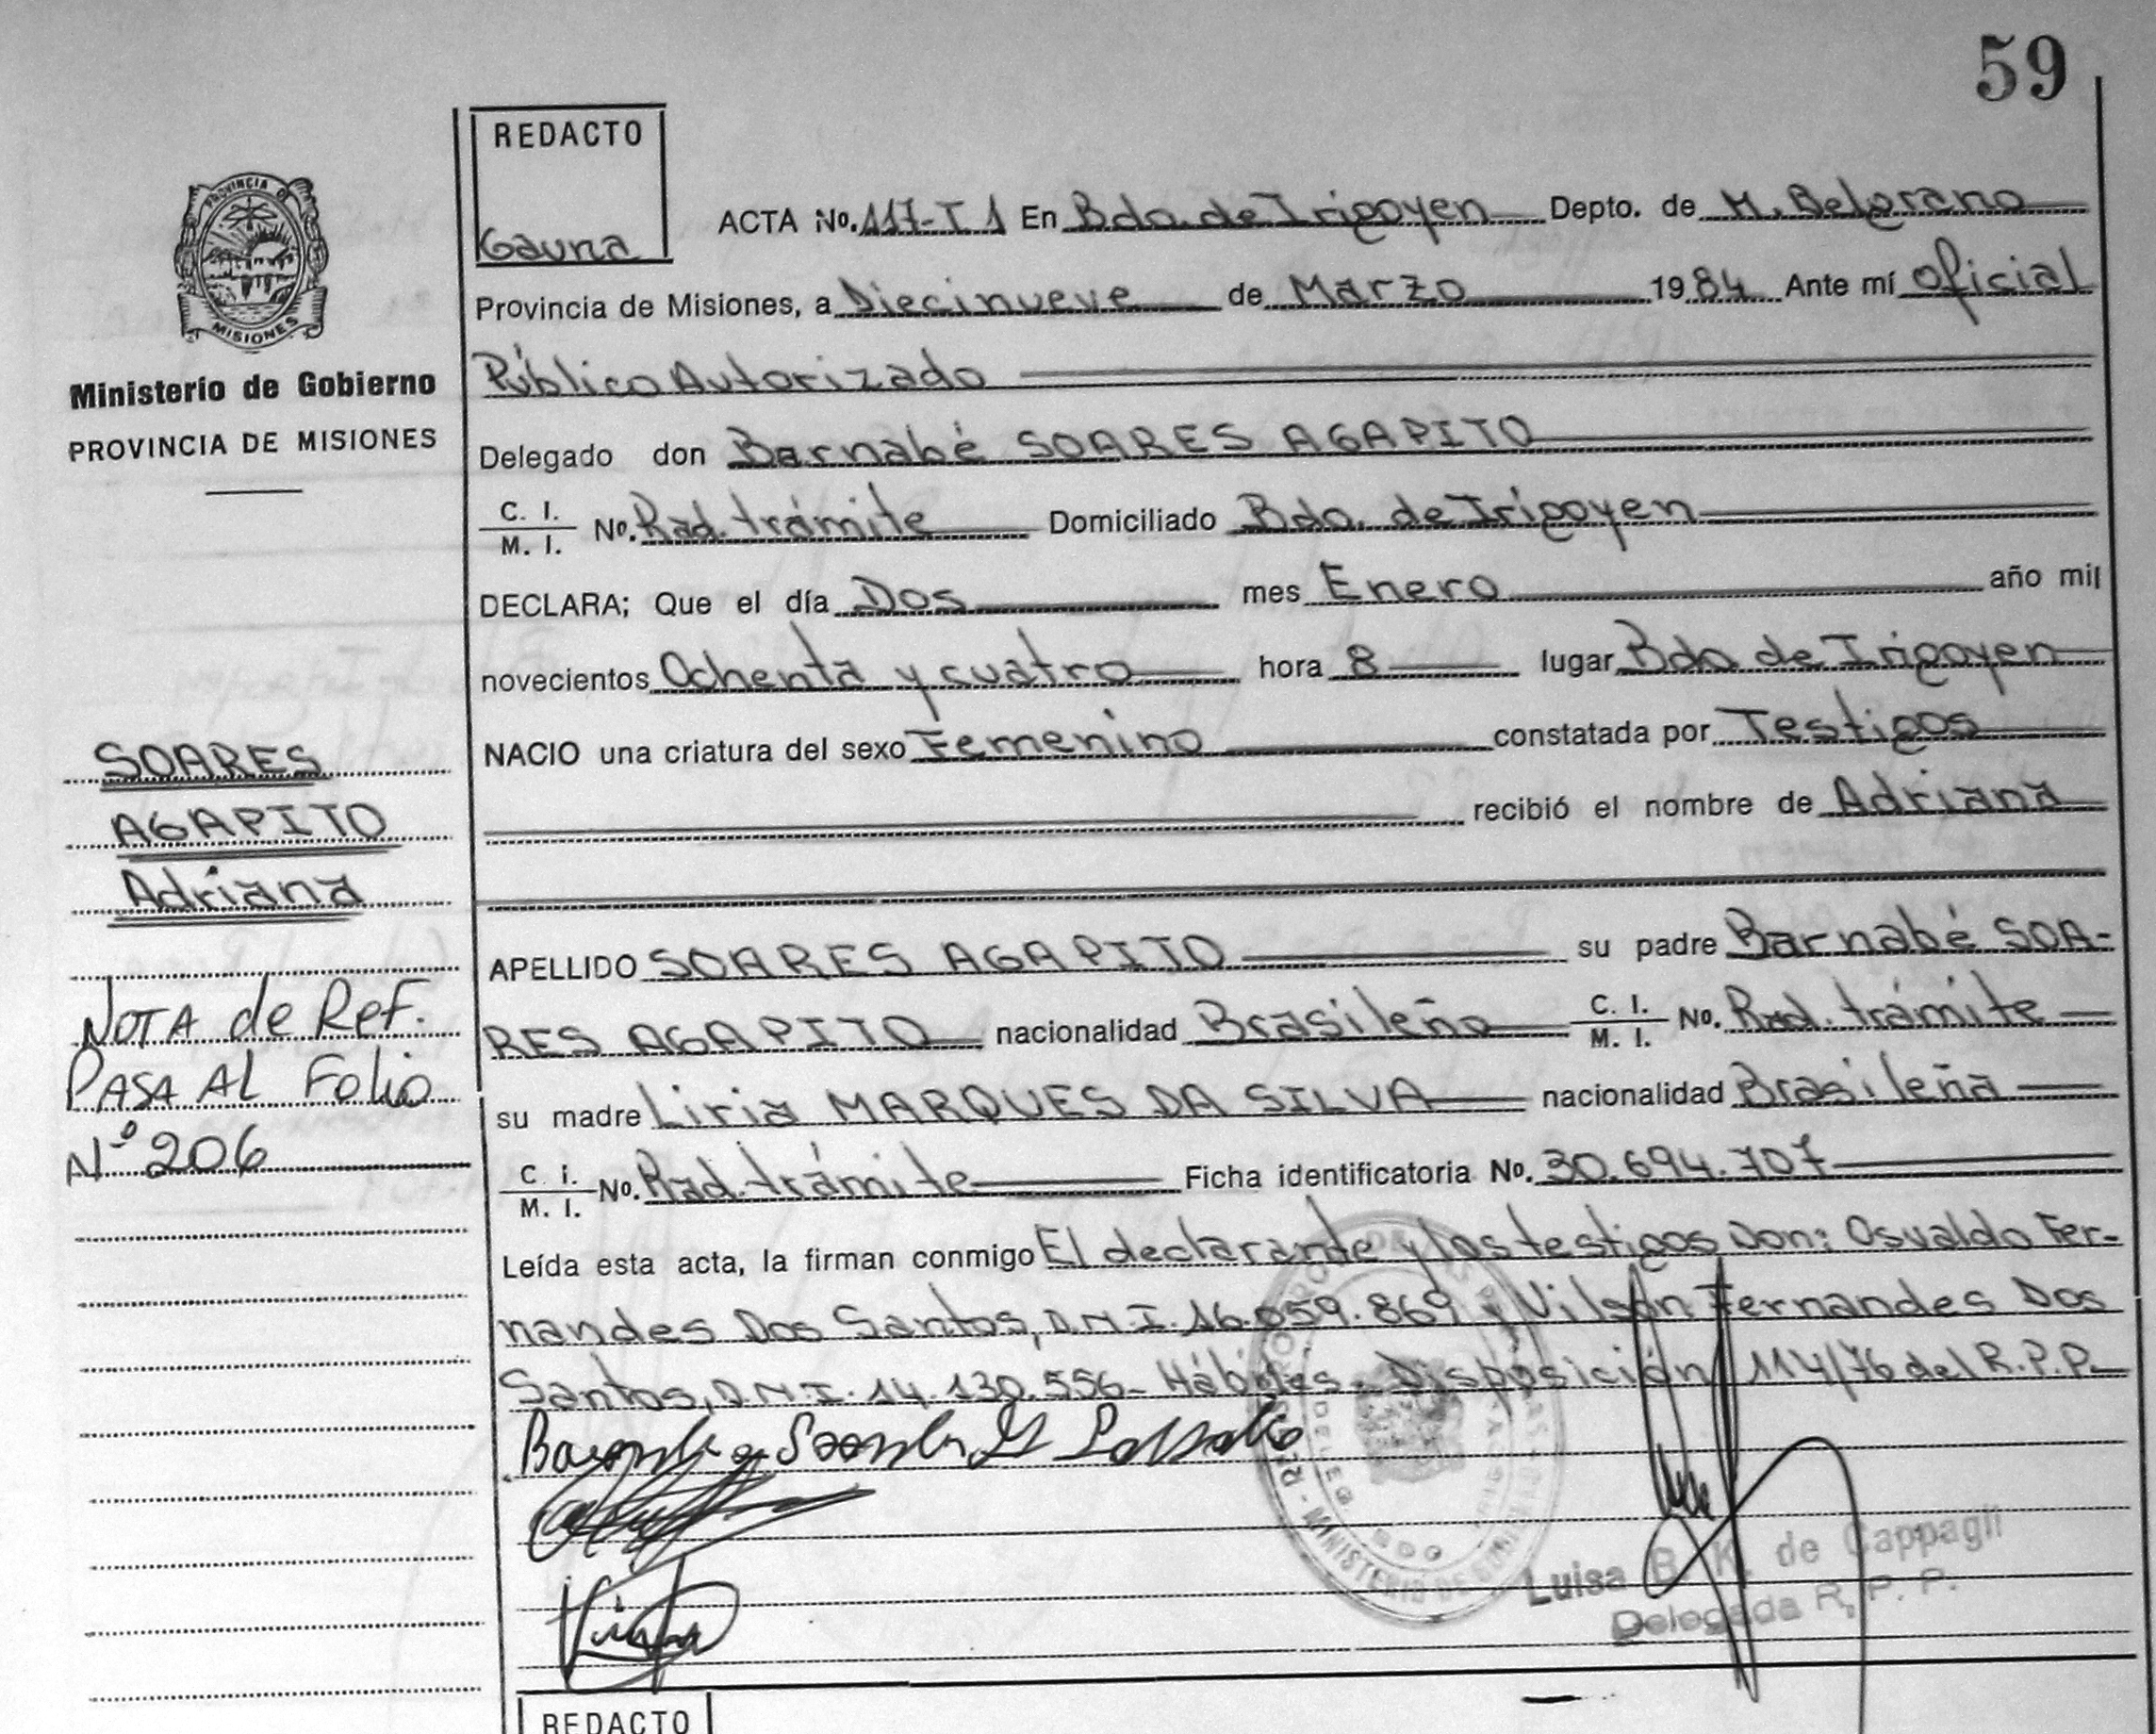 59
REDACTO
Gauna
PROVINCIA DE
MISIONES
Ministerio de Gobierno
PROVINCIA DE MISIONES
ACTA No. 117-T 1 En Bdo. de Irigoyen Depto. de M. Belgrano
Provincia de Misiones, a Diecinueve de Marzo 1984 Ante mí Oficial
Público Autorizado
Delegado don Barnabé SOARES AGAPITO
C. I.
M. I. No. Rad. trámite Domiciliado Bdo. de Irigoyen
DECLARA; Que el día Dos mes Enero año mil
novecientos Ochenta y cuatro hora 8 lugar Bdo de Irigoyen
NACIO una criatura del sexo Femenino constatada por Testigos
recibió el nombre de Adriana
SOARES
AGAPITO
Adriana
APELLIDO SOARES AGAPITO su padre Barnabé SOA-
RES AGAPITO nacionalidad Brasileño C. I. M. I. No. Rad. trámite
su madre Liria MARQUES DA SILVA nacionalidad Brasileña
C. I.
M. I. No. Rad. trámite Ficha identificatoria No. 30.694.707
NOTA de Ref.
PASA AL Folio
Nº 206
Leída esta acta, la firman conmigo El declarante y los testigos Don: Osvaldo Fer-
nandes Dos Santos, D.N.I. 16.059.869 y Vilson Fernandes Dos
Santos, D.N.I. 14.130.556- Hábiles. Disposición 114/76 del R.P.P.
Luisa B. K. de Cappagli
Delegada R. P. P.
REDACTO